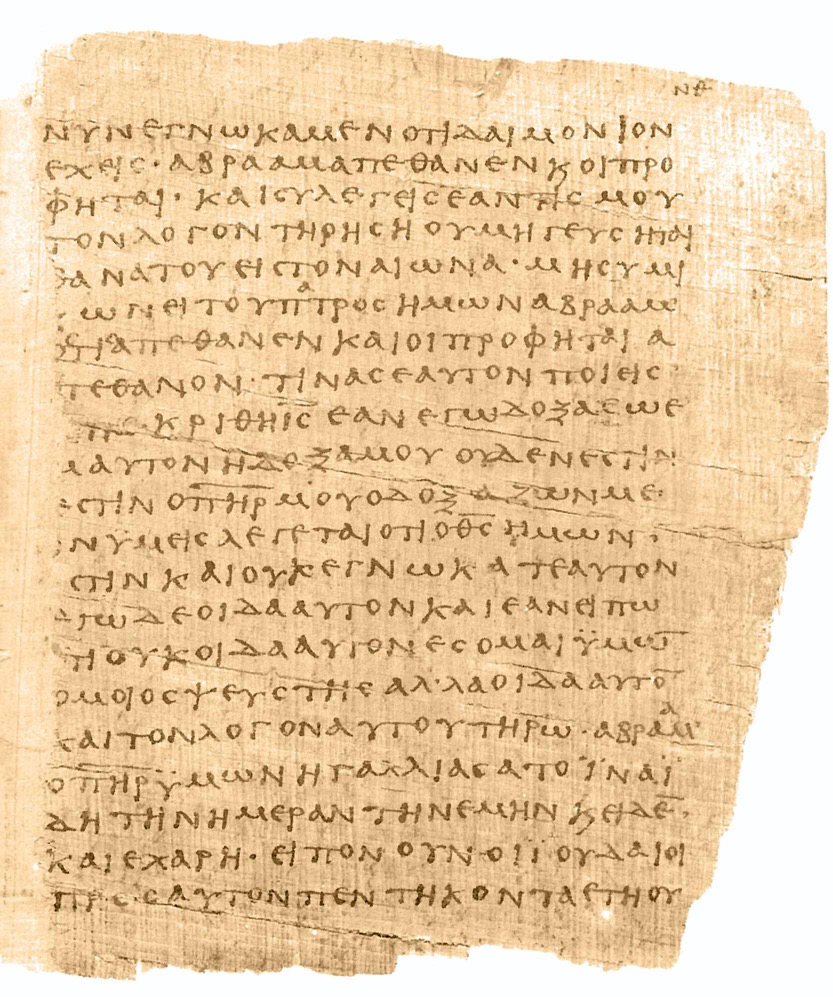 ΝΘ
ΝΥΝΕΓΝΩΚΑΜΕΝΟΤΙΔΑΙΜΟΝΙΟΝ
ΕΧΕΙϹ·ΑΒΡΑΑΜΑΠΕΘΑΝΕΝϏΟΙΠΡΟ
ΦΗΤΑΙ·ΚΑΙϹΥΛΕΓΕΙϹΕΑΝΤΙϹΜΟΥ
ΤΟΝΛΟΓΟΝΤΗΡΗϹΗΟΥΜΗΓΕΥϹΗΤΑΙ
ΘΑΝΑΤΟΥΕΙϹΤΟΝΑΙΩΝΑ·ΜΗϹΥΜΙ
ΩΝΕΙΤΟΥΠΑΤΡΟϹΗΜΩΝΑΒΡΑΑΜ
ΟΤΙΑΠΕΘΑΝΕΝΚΑΙΟΙΠΡΟΦΗΤΑΙΑ
ΠΕΘΑΝΟΝ·ΤΙΝΑϹΕΑΥΤΟΝΠΟΙΕΙϹ
ΚΡΙΘΗΙ̅Ϲ̅ΕΑΝΕΓΩΔΟΞΑϹΩΕ
ΜΑΥΤΟΝΗΔΟΞΑΜΟΥΟΥΔΕΝΕϹΤΙΝ
ΕϹΤΙΝΟΠ̅Η̅Ρ̅ΜΟΥΟΔΟΞΑΖΩΝΜΕ·
ΟΝΥΜΕΙϹΛΕΓΕΤΑΙΟΤΙΟΘ̅Ϲ̅ΗΜΩΝ
ϹΤΙΝΚΑΙΟΥΚΕΓΝΩΚΑΤΕΑΥΤΟΝ
ΕΓΩΔΕΟΙΔΑΑΥΤΟΝΚΑΙΕΑΝΕΙΠΩ
ΤΙΟΥΚΟΙΔΑΑΥΤΟΝΕϹΟΜΑΙΫΜΩ̅
ΟΜΟΙΟϹΨΕΥϹΤΗϹΑΛ·ΛΑΟΙΔΑΑΥΤΟ̅
ΚΑΙΤΟΝΛΟΓΟΝΑΥΤΟΥΤΗΡΩ·ΑΒΡΑΑΜ
ΟΠ̅Η̅Ρ̅ΫΜΩΝΗΓΑΛΛΙΑϹΑΤΟΪΝΑΪ
ΔΗΤΗΝΗΜΕΡΑΝΤΗΝΕΜΗΝϏΕΙΔΕ̅·
ΚΑΙΕΧΑΡΗ·ΕΙΠΟΝΟΥΝΟΙΪΟΥΔΑΙΟΙ
ΠΡΟϹΑΥΤΟΝΠΕΝΤΗΚΟΝΤΑΕΤΗΟΥ